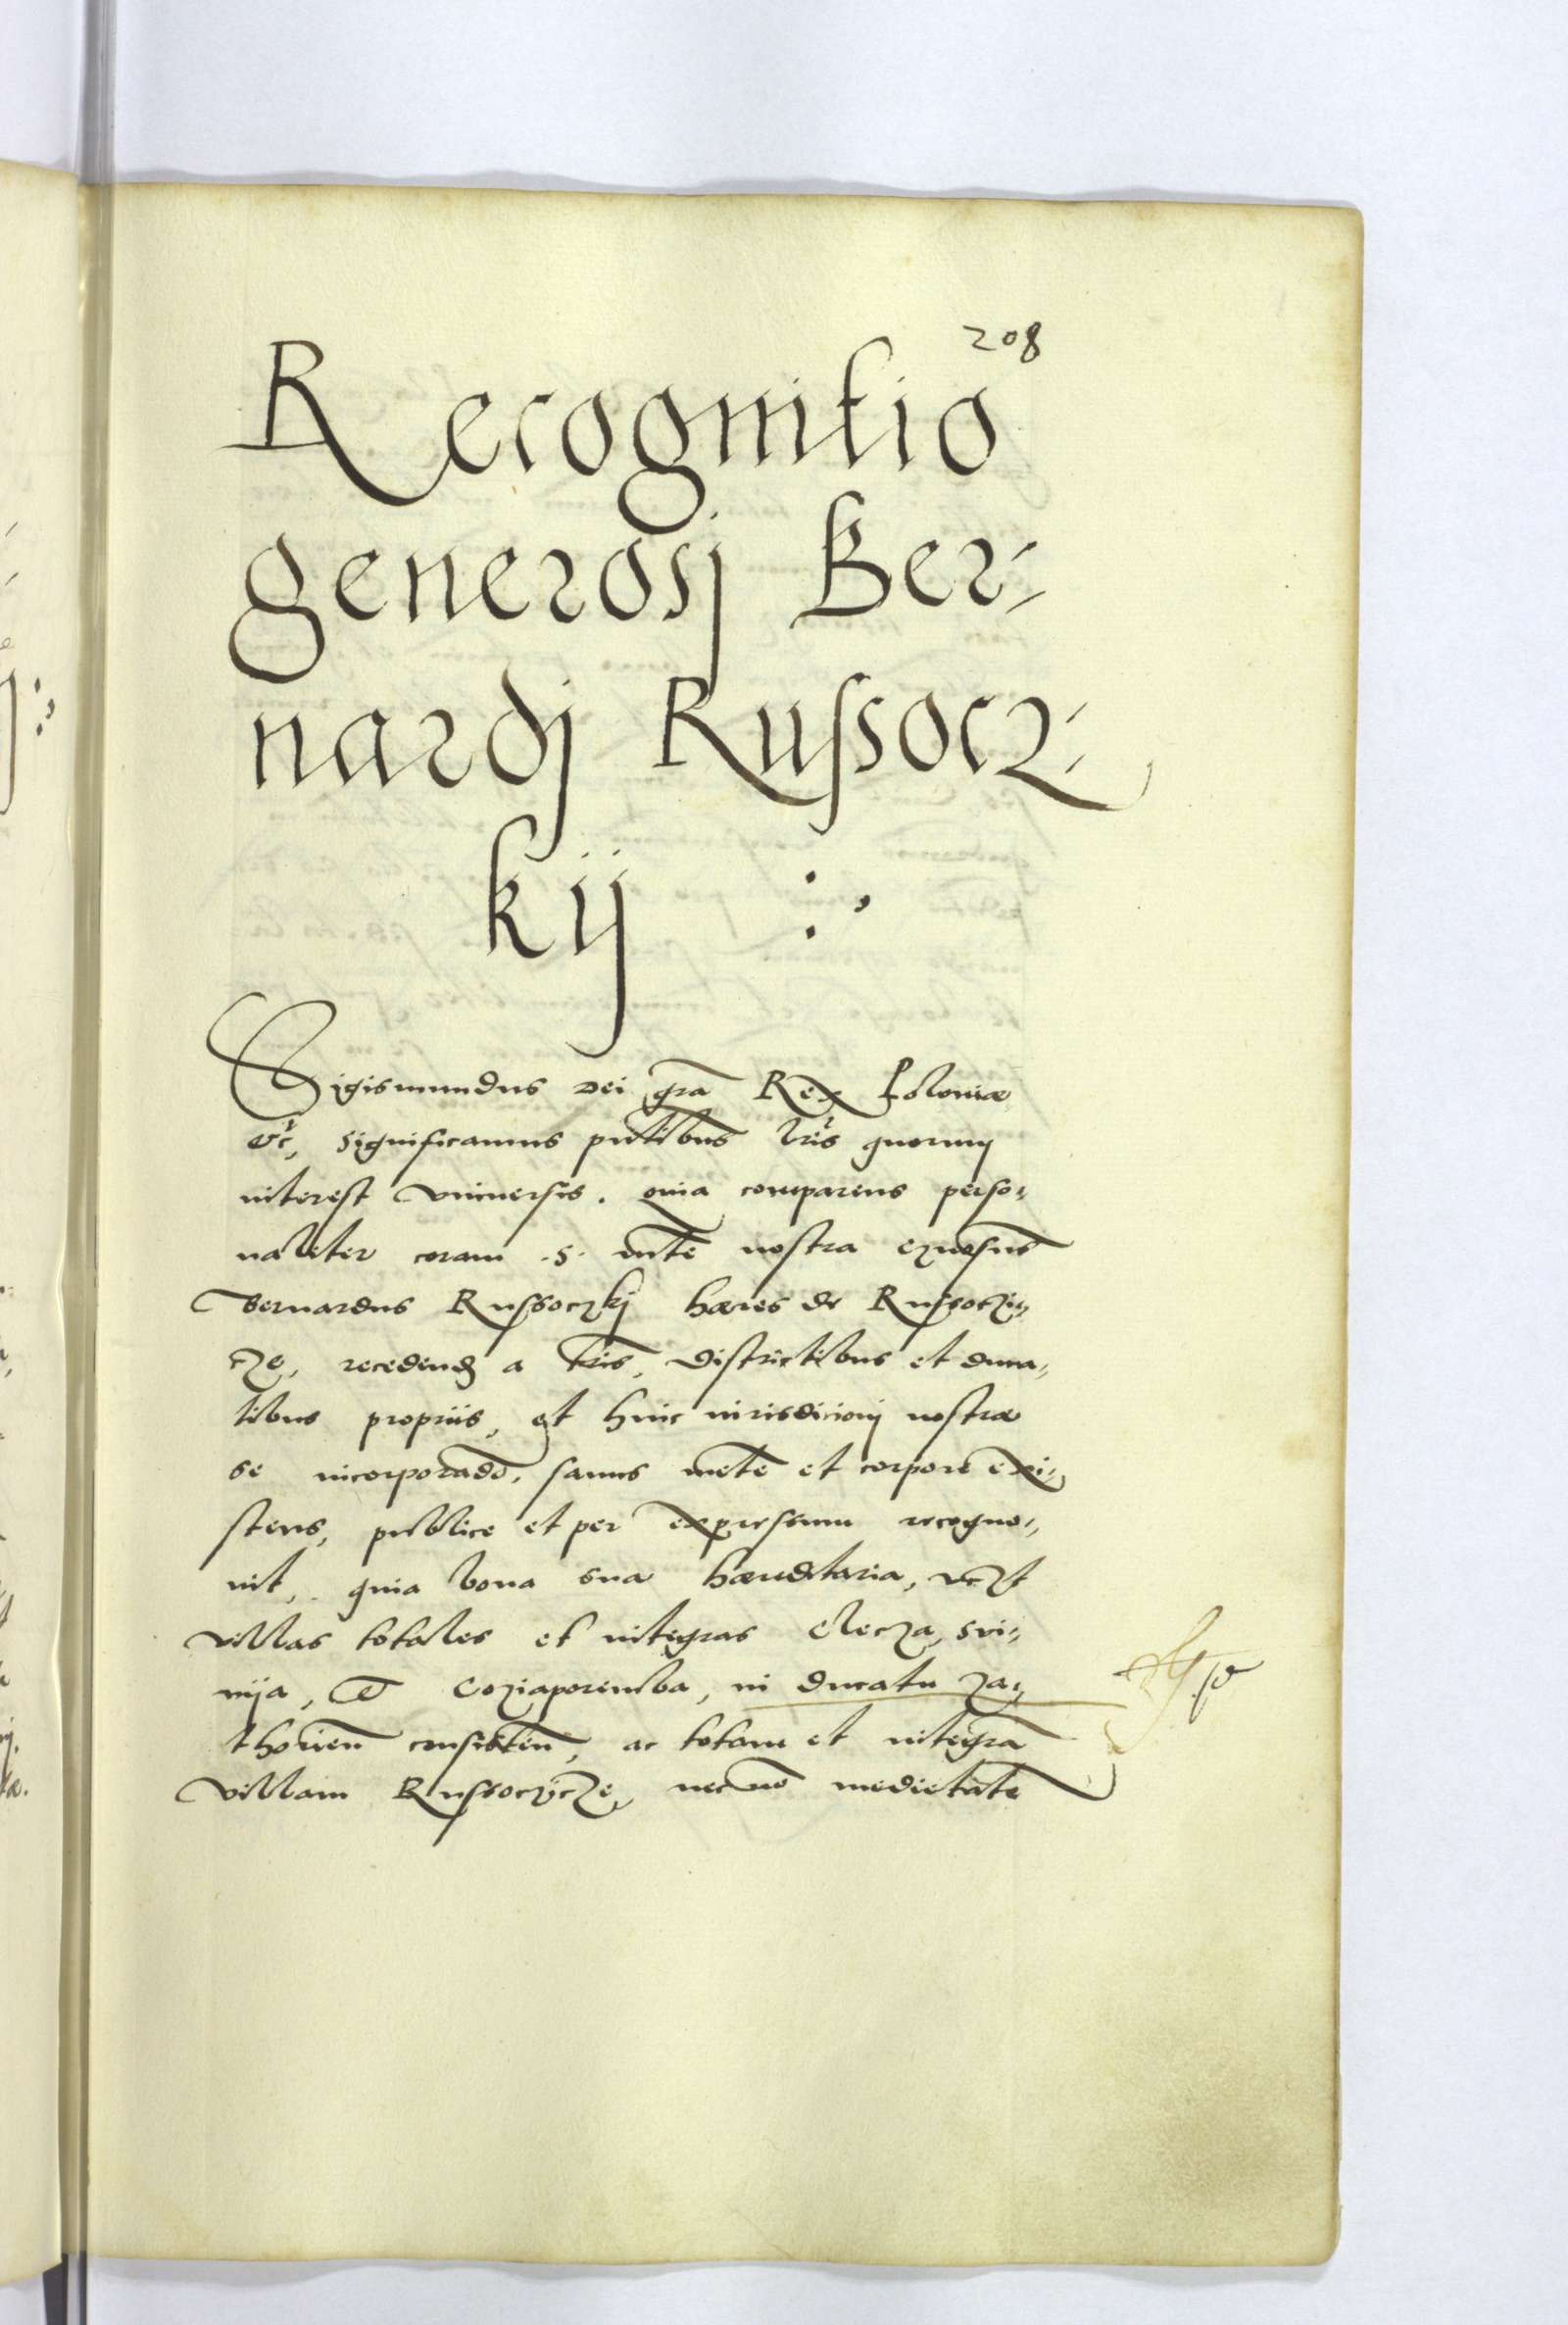 208
Recognitio
generosj Ber-
nardj Russocz-
kij :,
Sigismundus Dei gra Rex Poloniæ
etc, significamus pntibus lris quorum
interest vniuersis. quia comparens perso-
naliter coram .S. mte nostra gnosus
Bernardus Russoczkj hæres de Russoczi-
cze, recedendo a tris, districtibus et duca-
tibus propriis, et huic iurisdicionj nostræ
se incorporado, sanus mete et corpore exi-
stens, publice et per expressum recogno-
uit, quia bona sua hæreditaria, vczt
villas totales et integras Clecza, Svi-
nija, et Coziaporemba, in ducatu Za-
thorien consisten, ac totam et integra
villam Russoczicze, necno medietate